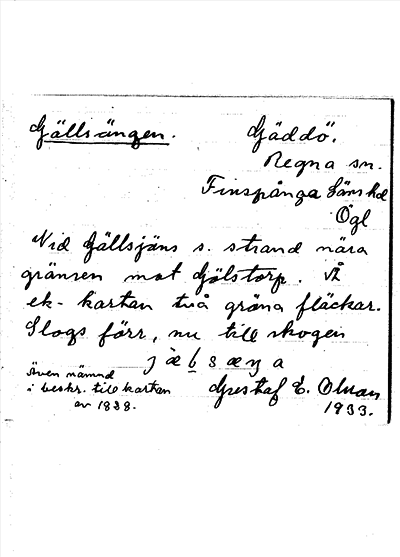 Gällsängen.
Gäddö.
Regna sn.
Finspånga läns hd
Ögl
Vid Gällsjäns s. strand nära
gränsen mot Gölstorp. På
ek-kartan två gröna fläckar.
Slogs förr, nu till skogen
Även nämnd
i beskr. till kartan
av 1838.
Gustaf E. Olman
1933.